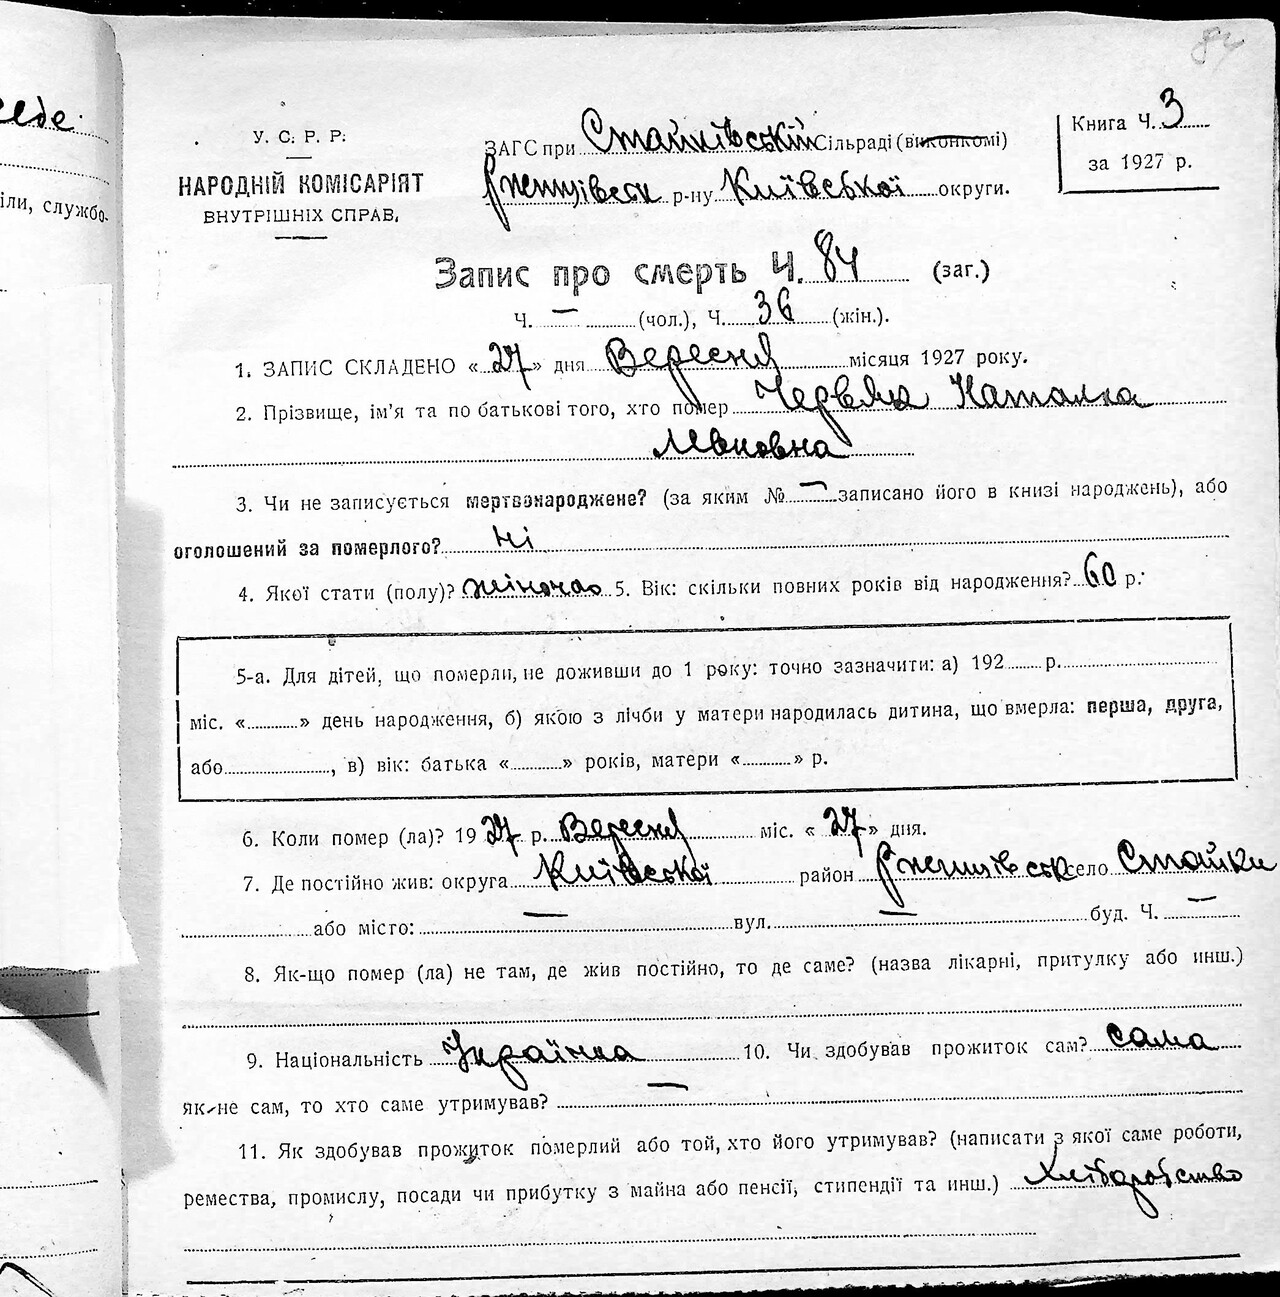 84
еде
іли, службо-
У. С. Р. Р.
НАРОДНІЙ КОМІСАРІЯТ
ВНУТРІШНІХ СПРАВ.
ЗАГС при Стайківській Сільраді (виконкомі)
Ржищівськ р-ну Київської округи.
Книга Ч. 3
за 1927 р.
Запис про смерть Ч. 84 (заг.)
Ч. — (чол.), Ч. 36 (жін.).
1. ЗАПИС СКЛАДЕНО « 27 » дня Вересня місяця 1927 року.
2. Прізвище, ім'я та по батькові того, хто помер Червяк Наталка
Левковна
3. Чи не записується мертвонароджене? (за яким № — записано його в книзі народжень), або
оголошений за померлого? Ні
4. Якої стати (полу)? жіночао 5. Вік: скільки повних років від народження? 60 р.
5-а. Для дітей, що померли, не доживши до 1 року: точно зазначити: а) 192 р.
міс. « » день народження, б) якою з лічби у матери народилась дитина, що вмерла: перша, друга,
або , в) вік: батька « » років, матери « » р.
6. Коли помер (ла)? 19 27 р. Вересня міс. « 27 » дня.
7. Де постійно жив: округа Київської район Ржищівськ село Стайки
або місто: — вул. — буд. Ч. —
8. Як-що помер (ла) не там, де жив постійно, то де саме? (назва лікарні, притулку або инш.)
9. Національність Українка 10. Чи здобував прожиток сам? сама
як не сам, то хто саме утримував? —
11. Як здобував прожиток померлий або той, хто його утримував? (написати з якої саме роботи,
ремества, промислу, посади чи прибутку з майна або пенсії, стипендії та инш.) Хліборобство